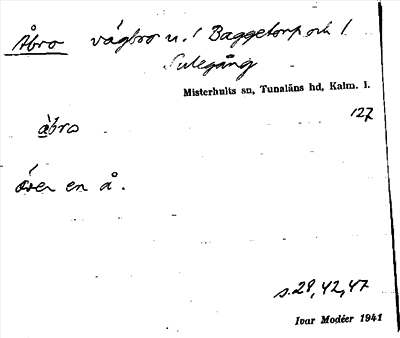 Åbro vägbro u. 1 Baggetorp och 1
Sulegång
Misterhults sn, Tunaläns hd, Kalm. l.
127
åbro
över en å.
s. 28, 42, 47
Ivar Modéer 1941